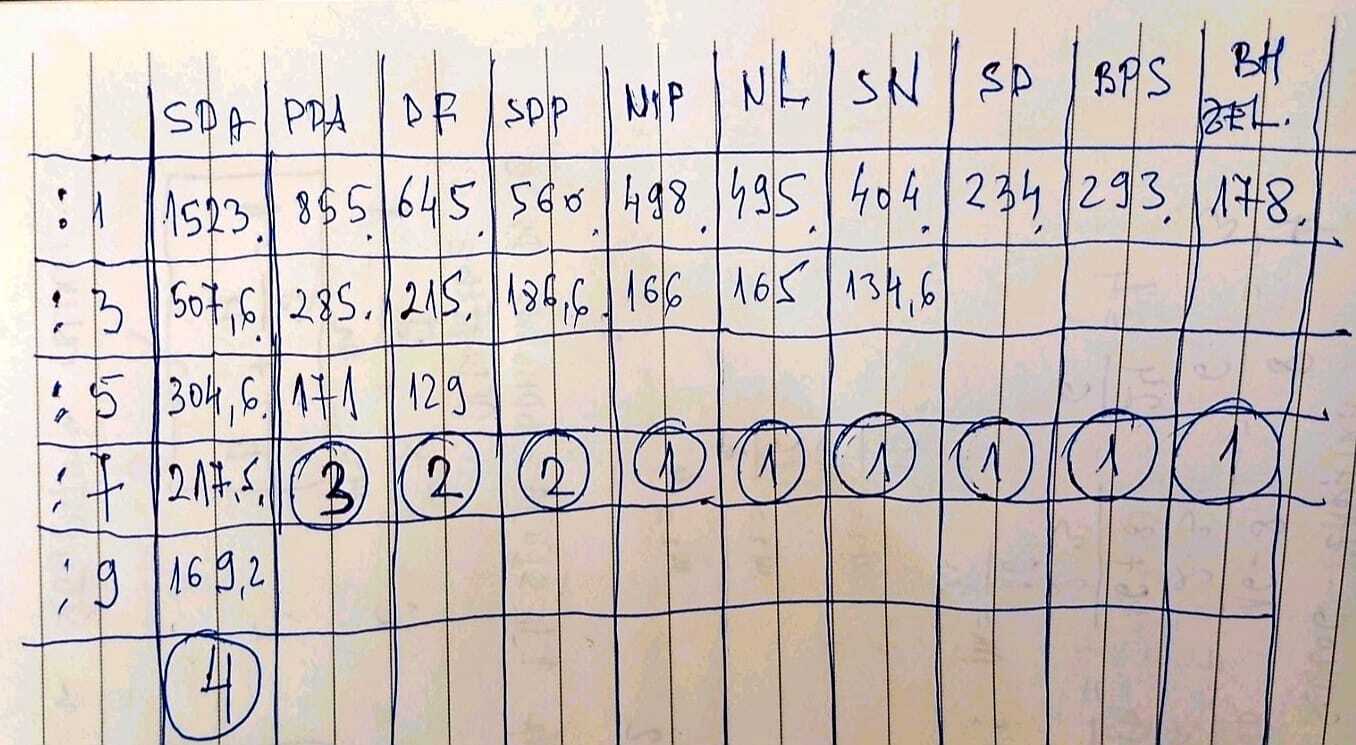 SDA PDA DF SDP NIP NL SN SD BPS BH ZEL.
:1 1523. 855. 645. 560. 498. 495. 404. 234. 293. 178.
:3 507,6. 285. 215. 186,6. 166 165 134,6
:5 304,6. 171 129
:7 217,5. 3 2 2 1 1 1 1 1 1
:9 169,2
4